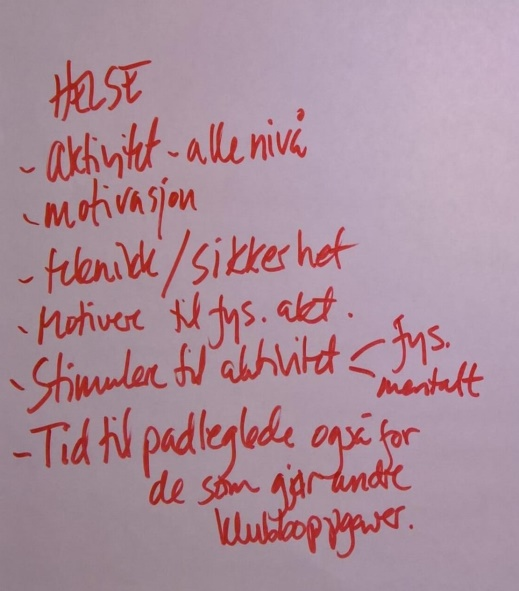 HELSE
- aktivitet - alle nivå
- motivasjon
- teknikk / sikkerhet
- Motivere til fys. akt.
- Stimulere til aktivitet < fys.
mentalt
- Tid til padleglede også for
de som gjør andre
klubboppgaver.